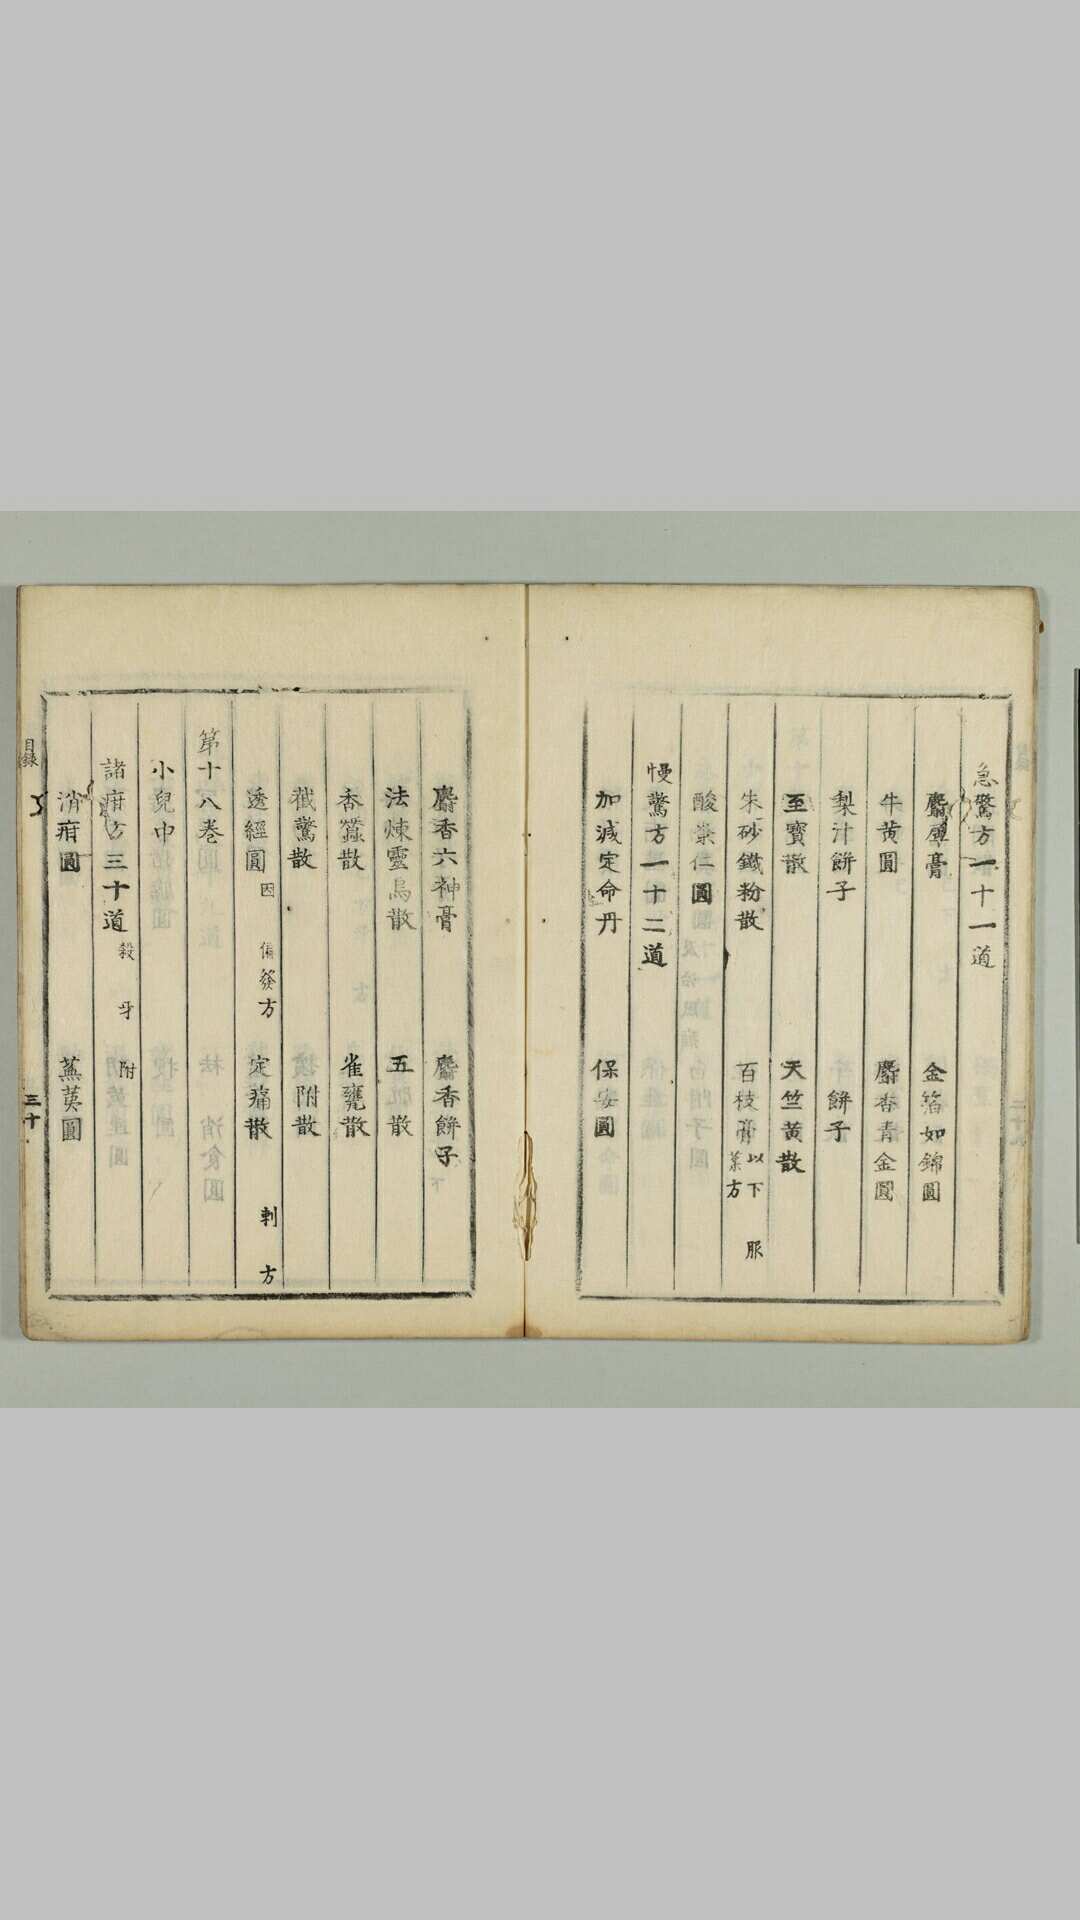 急驚方一十一道
麝犀膏 金箔如錦圓
牛黄圓 麝香青金圓
梨汁餅子 餅子
至寶散 天竺黄散
朱砂鐵粉散 百枝膏 以下 服 藥方
酸棗仁圓
慢驚方一十二道
加減定命丹 保安圓
麝香六神膏 麝香餅子
法煉靈烏散 五 散
香 散 雀甕散
截驚散 附散
透經圓 因 偏 發方 定痛散 刺 方
第十八巻
小兒中
諸疳方三十道 殺 牙 附
消疳圓 蕪荑圓
目録 三十